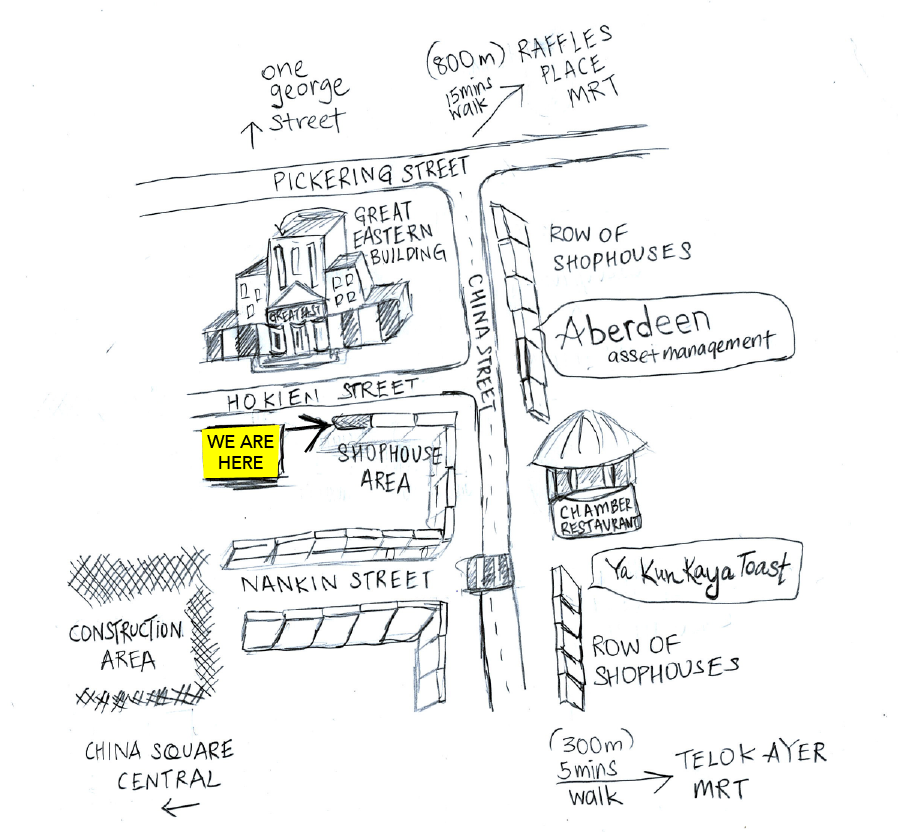 one
george
street
(800m)
15mins
walk
RAFFLES
PLACE
MRT
PICKERING STREET
GREAT
EASTERN
BUILDING
GREAT EAST
ROW OF
SHOPHOUSES
CHINA STREET
Aberdeen
asset management
HOKIEN STREET
WE ARE
HERE
SHOPHOUSE
AREA
CHAMBER
RESTAURANT
NANKIN STREET
Ya Kun Kaya Toast
CONSTRUCTION
AREA
ROW OF
SHOPHOUSES
CHINA SQUARE
CENTRAL
(300m)
5mins
walk
TELOK AYER
MRT